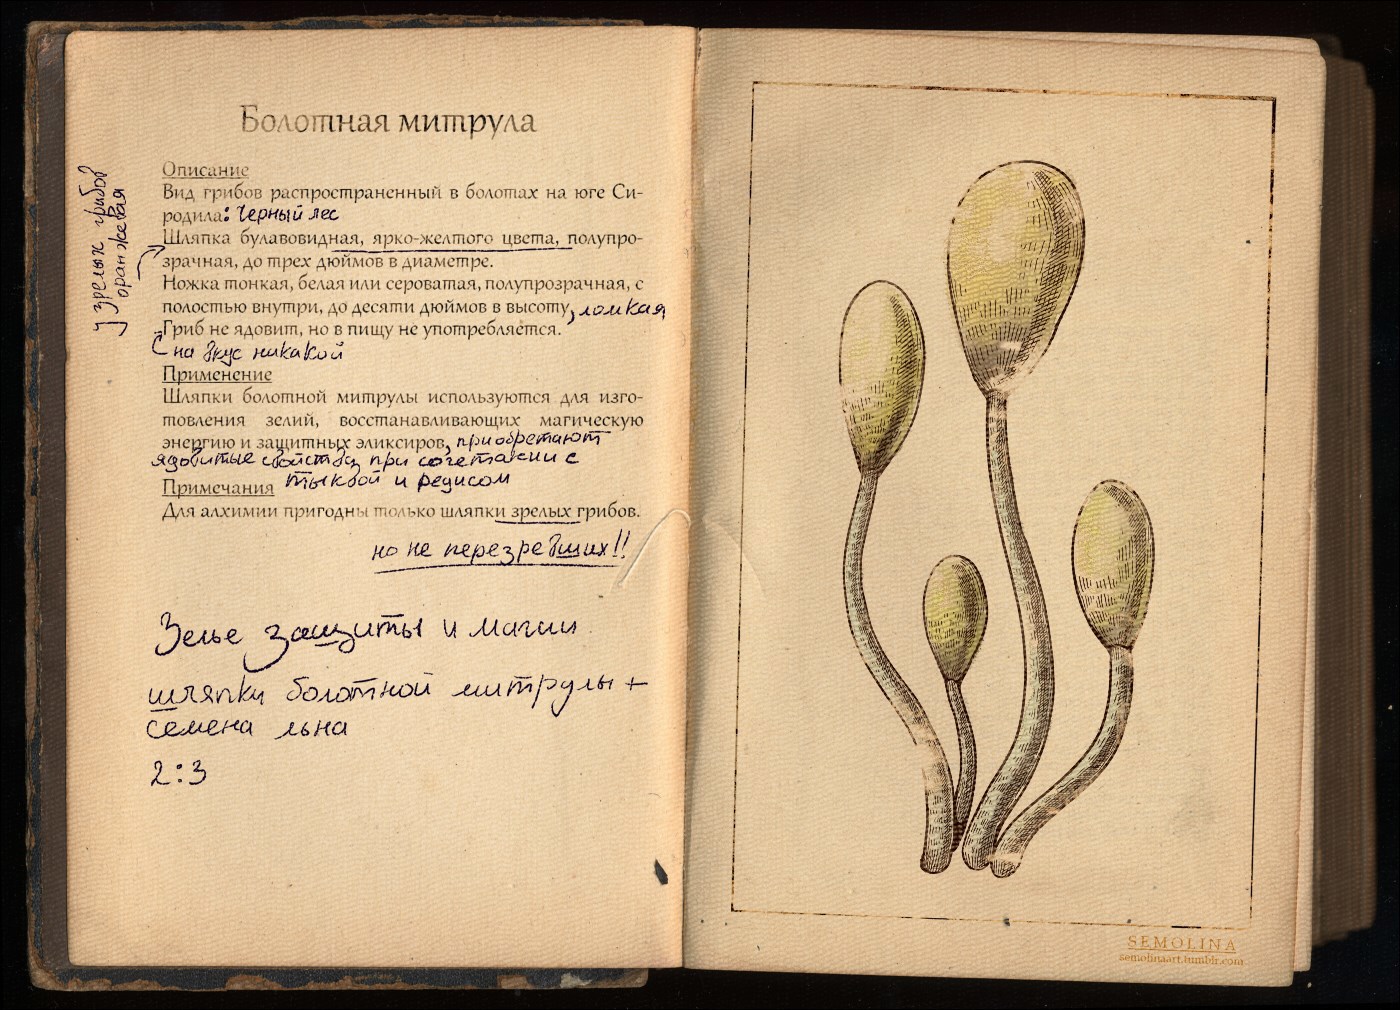 Болотная митрула
Описание
Вид грибов распространенный в болотах на юге Си-
родила: Черный лес
Шляпка булавовидная, ярко-желтого цвета, полупро-
зрачная, до трех дюймов в диаметре.
Ножка тонкая, белая или сероватая, полупрозрачная, с
полостью внутри, до десяти дюймов в высоту, ломкая
Гриб не ядовит, но в пищу не употребляется.
на вкус никакой
у зрелых грибов
оранжевая
Применение
Шляпки болотной митрулы используются для изго-
товления зелий, восстанавливающих магическую
энергию и защитных эликсиров, приобретают
ядовитые свойства при сочетании с
тыквой и редисом
Примечания
Для алхимии пригодны только шляпки зрелых грибов.
но не перезревших!!
Зелье защиты и магии
шляпки болотной митрулы +
семена льна
2:3
SEMOLINA
semolinaart.tumblr.com